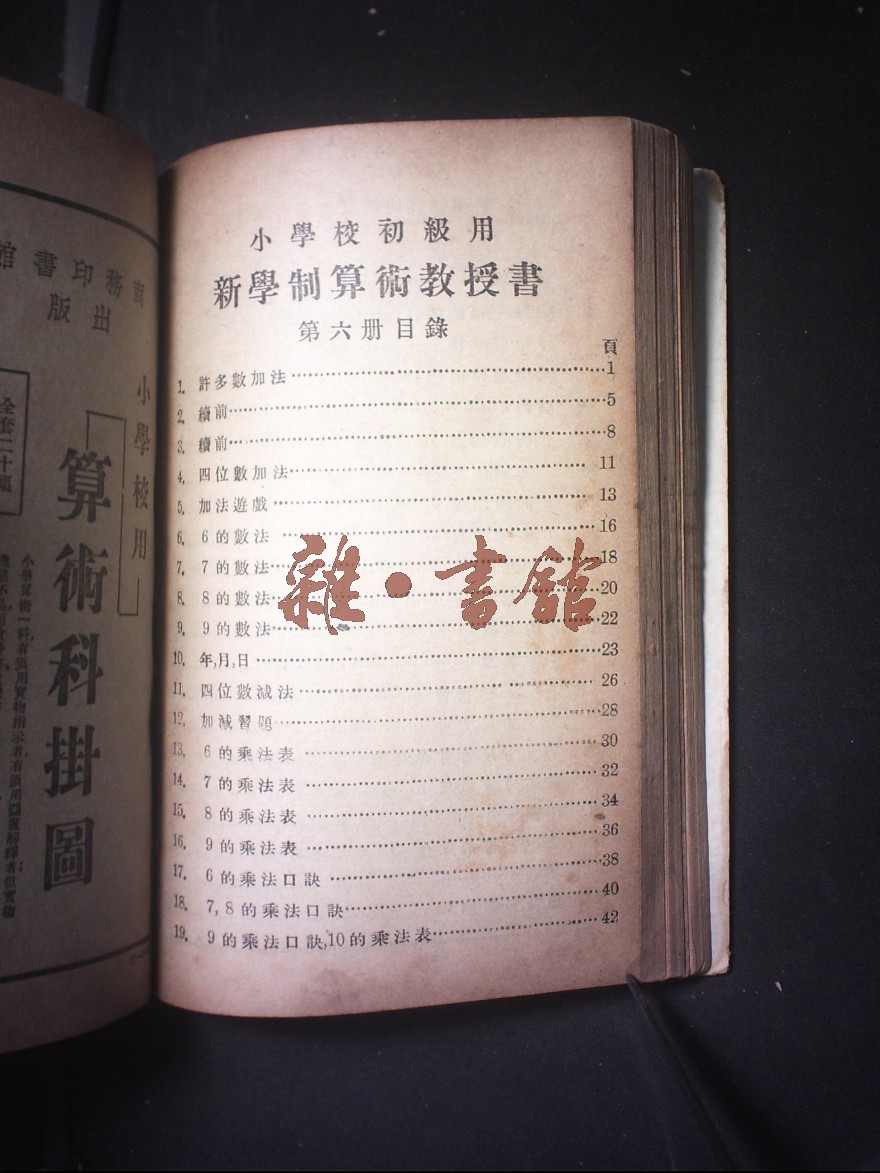 小學校初級用
新學制算術教授書
第六册目錄
頁
1. 許多數加法 1
2. 續前 5
3. 續前 8
4. 四位數加法 11
5. 加法遊戲 13
6. 6的數法 16
7. 7的數法 18
8. 8的數法 20
9. 9的數法 22
10. 年,月,日 23
11. 四位數減法 26
12. 加減習題 28
13. 6的乘法表 30
14. 7的乘法表 32
15. 8的乘法表 34
16. 9的乘法表 36
17. 6的乘法口訣 38
18. 7,8的乘法口訣 40
19. 9的乘法口訣,10的乘法表 42
雜·書館
館書印務商
版出
小學校用
算術科掛圖
全套二十幅